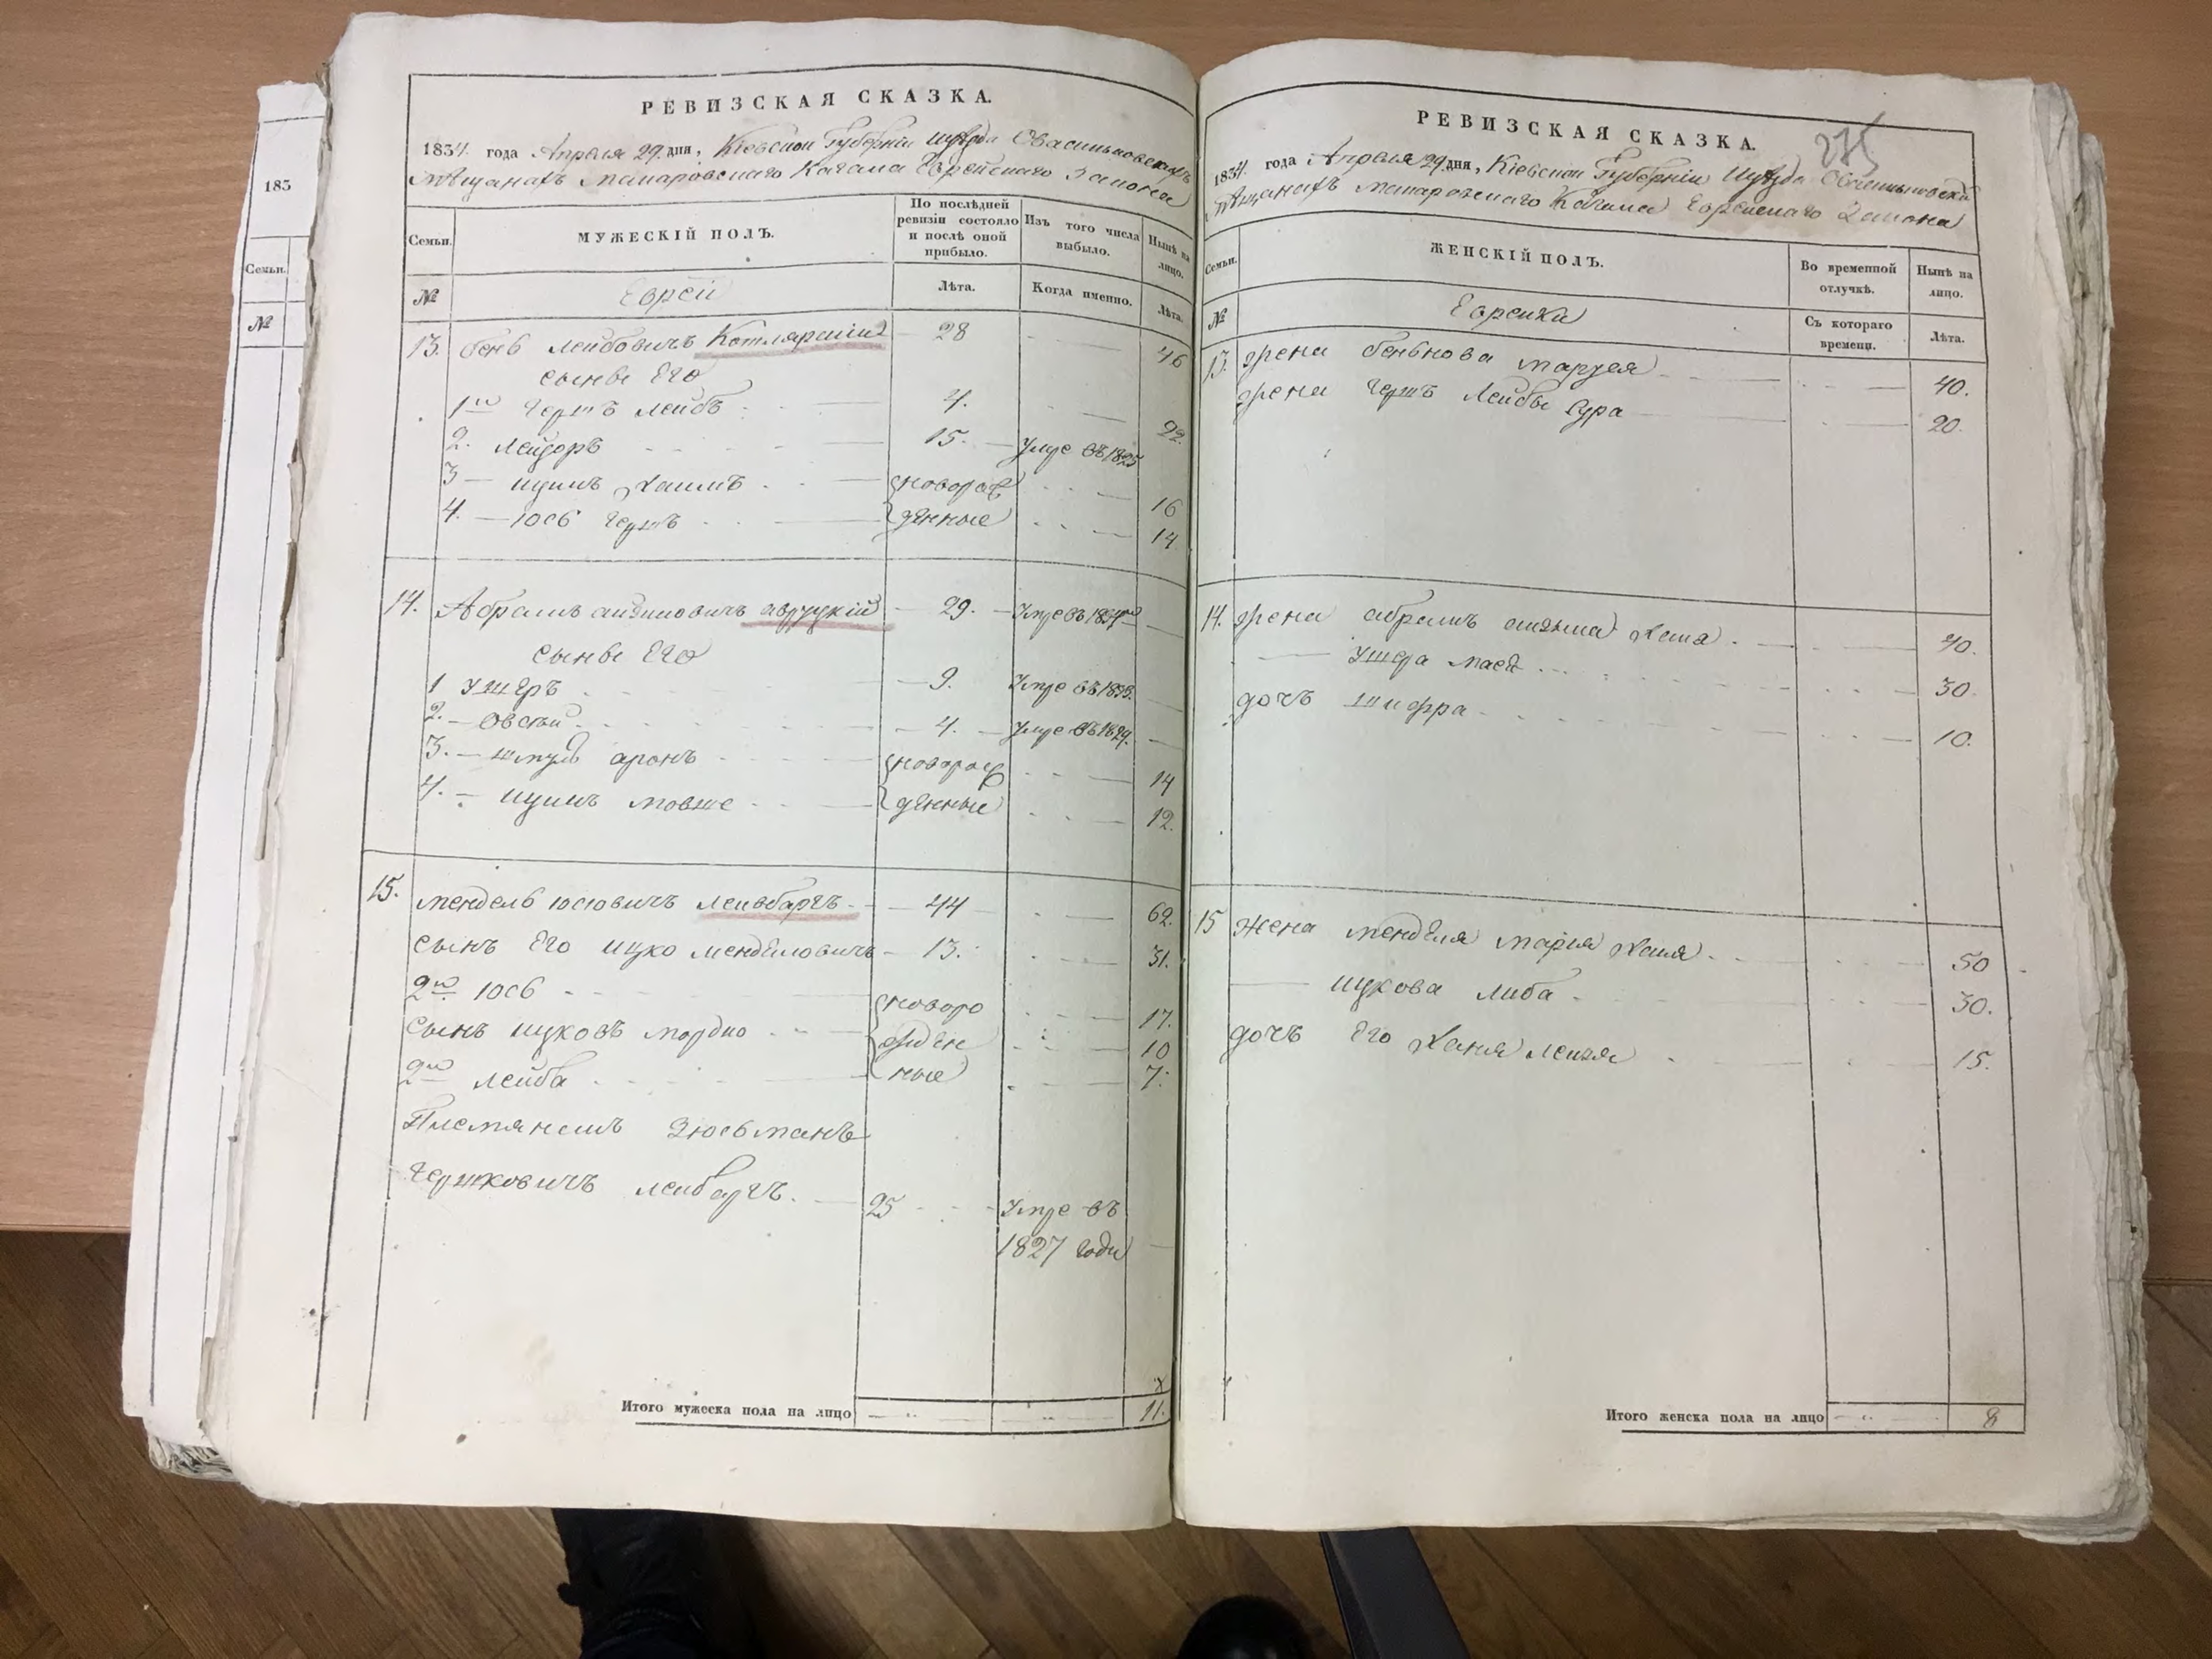 183
Семьи.
№
РЕВИЗСКАЯ СКАЗКА.
1834 года Апреля 29 дня, Кіевской Губерніи
Мещанахъ Макаровскаго Кагала Еврейскаго Закона
Семьи.
МУЖЕСКІЙ ПОЛЪ.
По послѣдней ревизіи состояло и послѣ оной прибыло.
Изъ того числа выбыло.
Нынѣ на лицо.
№
Евреи
Лѣта.
Когда именно.
Лѣта.
13. бенѣ Лейбовичъ Котлярскій 28 46
сынве Его
1й Гершъ Лейбъ 4. 22.
2. Лейзоръ 15. Умре въ 1825
3 Ицикъ Хаимъ новорож 16
4. Iосѣ Гершъ денные 14
14. Абрамъ Овруцкій 29. Умре въ 1834
сынве Его
1 Ушеръ 9. Умре въ 1833.
2. Овсѣй 4. Умре въ 1829.
3. Шмулъ аронъ новорож 14
4. ицикъ мовше денные 12.
15. мендель юсіовичъ Лейвбаргъ 44 62.
сынъ Его ицко менделовичъ 13. 31.
2й Iосѣ новоро 17.
сынъ ицковъ мордко жден 10
2й лейба ные 7.
Племяникъ Зюсьманъ
Гершковичъ лейбаргъ. 25 Умре въ
1827 годи
Итого мужеска пола на лицо 11.
РЕВИЗСКАЯ СКАЗКА.
275
1834 года Апреля 29 дня, Кіевской Губерніи
Мещанахъ Макаровскаго Кагала Еврейскаго Закона
Семьи.
ЖЕНСКІЙ ПОЛЪ.
Во временной отлучкѣ.
Нынѣ на лицо.
№
Еврейки
Съ котораго времени.
Лѣта.
13. жена бенькова Марьея 40.
жена Гершъ Лейбы Сура 20.
14. жена абрамъ Хаия 40.
Ушера Мася 30.
дочъ шифра 10.
15 жена менделя Марія Хаия 50
ицкова Либа 30.
дочъ Его Хания Лейя 15.
Итого женска пола на лицо 8